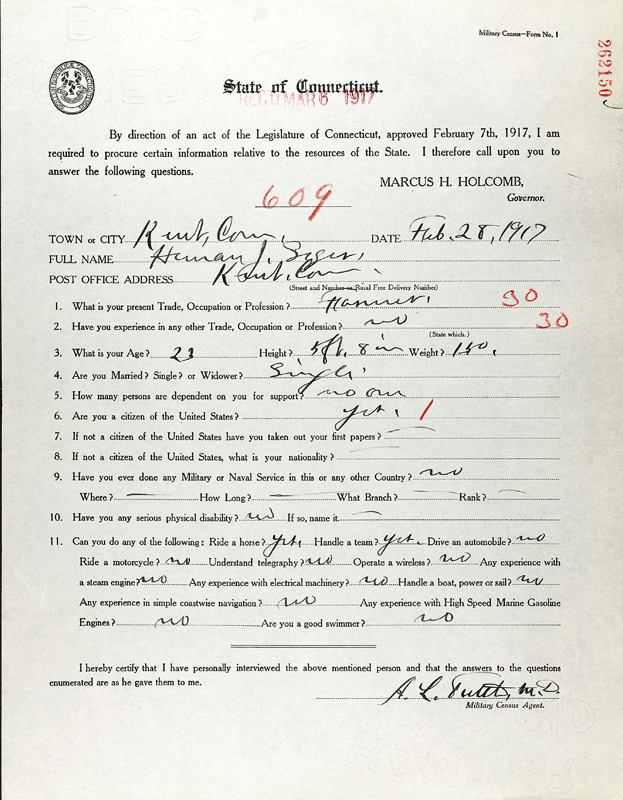 Military Census—Form No. 1
262150
State of Connecticut.
REC'D MAR 6 1917
By direction of an act of the Legislature of Connecticut, approved February 7th, 1917, I am
required to procure certain information relative to the resources of the State. I therefore call upon you to
answer the following questions.
MARCUS H. HOLCOMB,
Governor.
609
TOWN or CITY Kent, Conn. DATE Feb. 28, 1917
FULL NAME Herman J.
POST OFFICE ADDRESS Kent, Conn.
(Street and Number or Rural Free Delivery Number)
1. What is your present Trade, Occupation or Profession? Farmer, 30
2. Have you experience in any other Trade, Occupation or Profession? no 30
(State which.)
3. What is your Age? 23 Height? 5ft. 8 in Weight? 150.
4. Are you Married? Single? or Widower? Single.
5. How many persons are dependent on you for support? no one
6. Are you a citizen of the United States? yes. 1
7. If not a citizen of the United States have you taken out your first papers?
8. If not a citizen of the United States, what is your nationality?
9. Have you ever done any Military or Naval Service in this or any other Country? no
Where? How Long? What Branch? Rank?
10. Have you any serious physical disability? no If so, name it.
11. Can you do any of the following: Ride a horse? yes, Handle a team? yes. Drive an automobile? no
Ride a motorcycle? no Understand telegraphy? no Operate a wireless? no Any experience with
a steam engine? no Any experience with electrical machinery? no Handle a boat, power or sail? no
Any experience in simple coastwise navigation? no Any experience with High Speed Marine Gasoline
Engines? no Are you a good swimmer? no
I hereby certify that I have personally interviewed the above mentioned person and that the answers to the questions
enumerated are as he gave them to me.
A. L. M.D.
Military Census Agent.